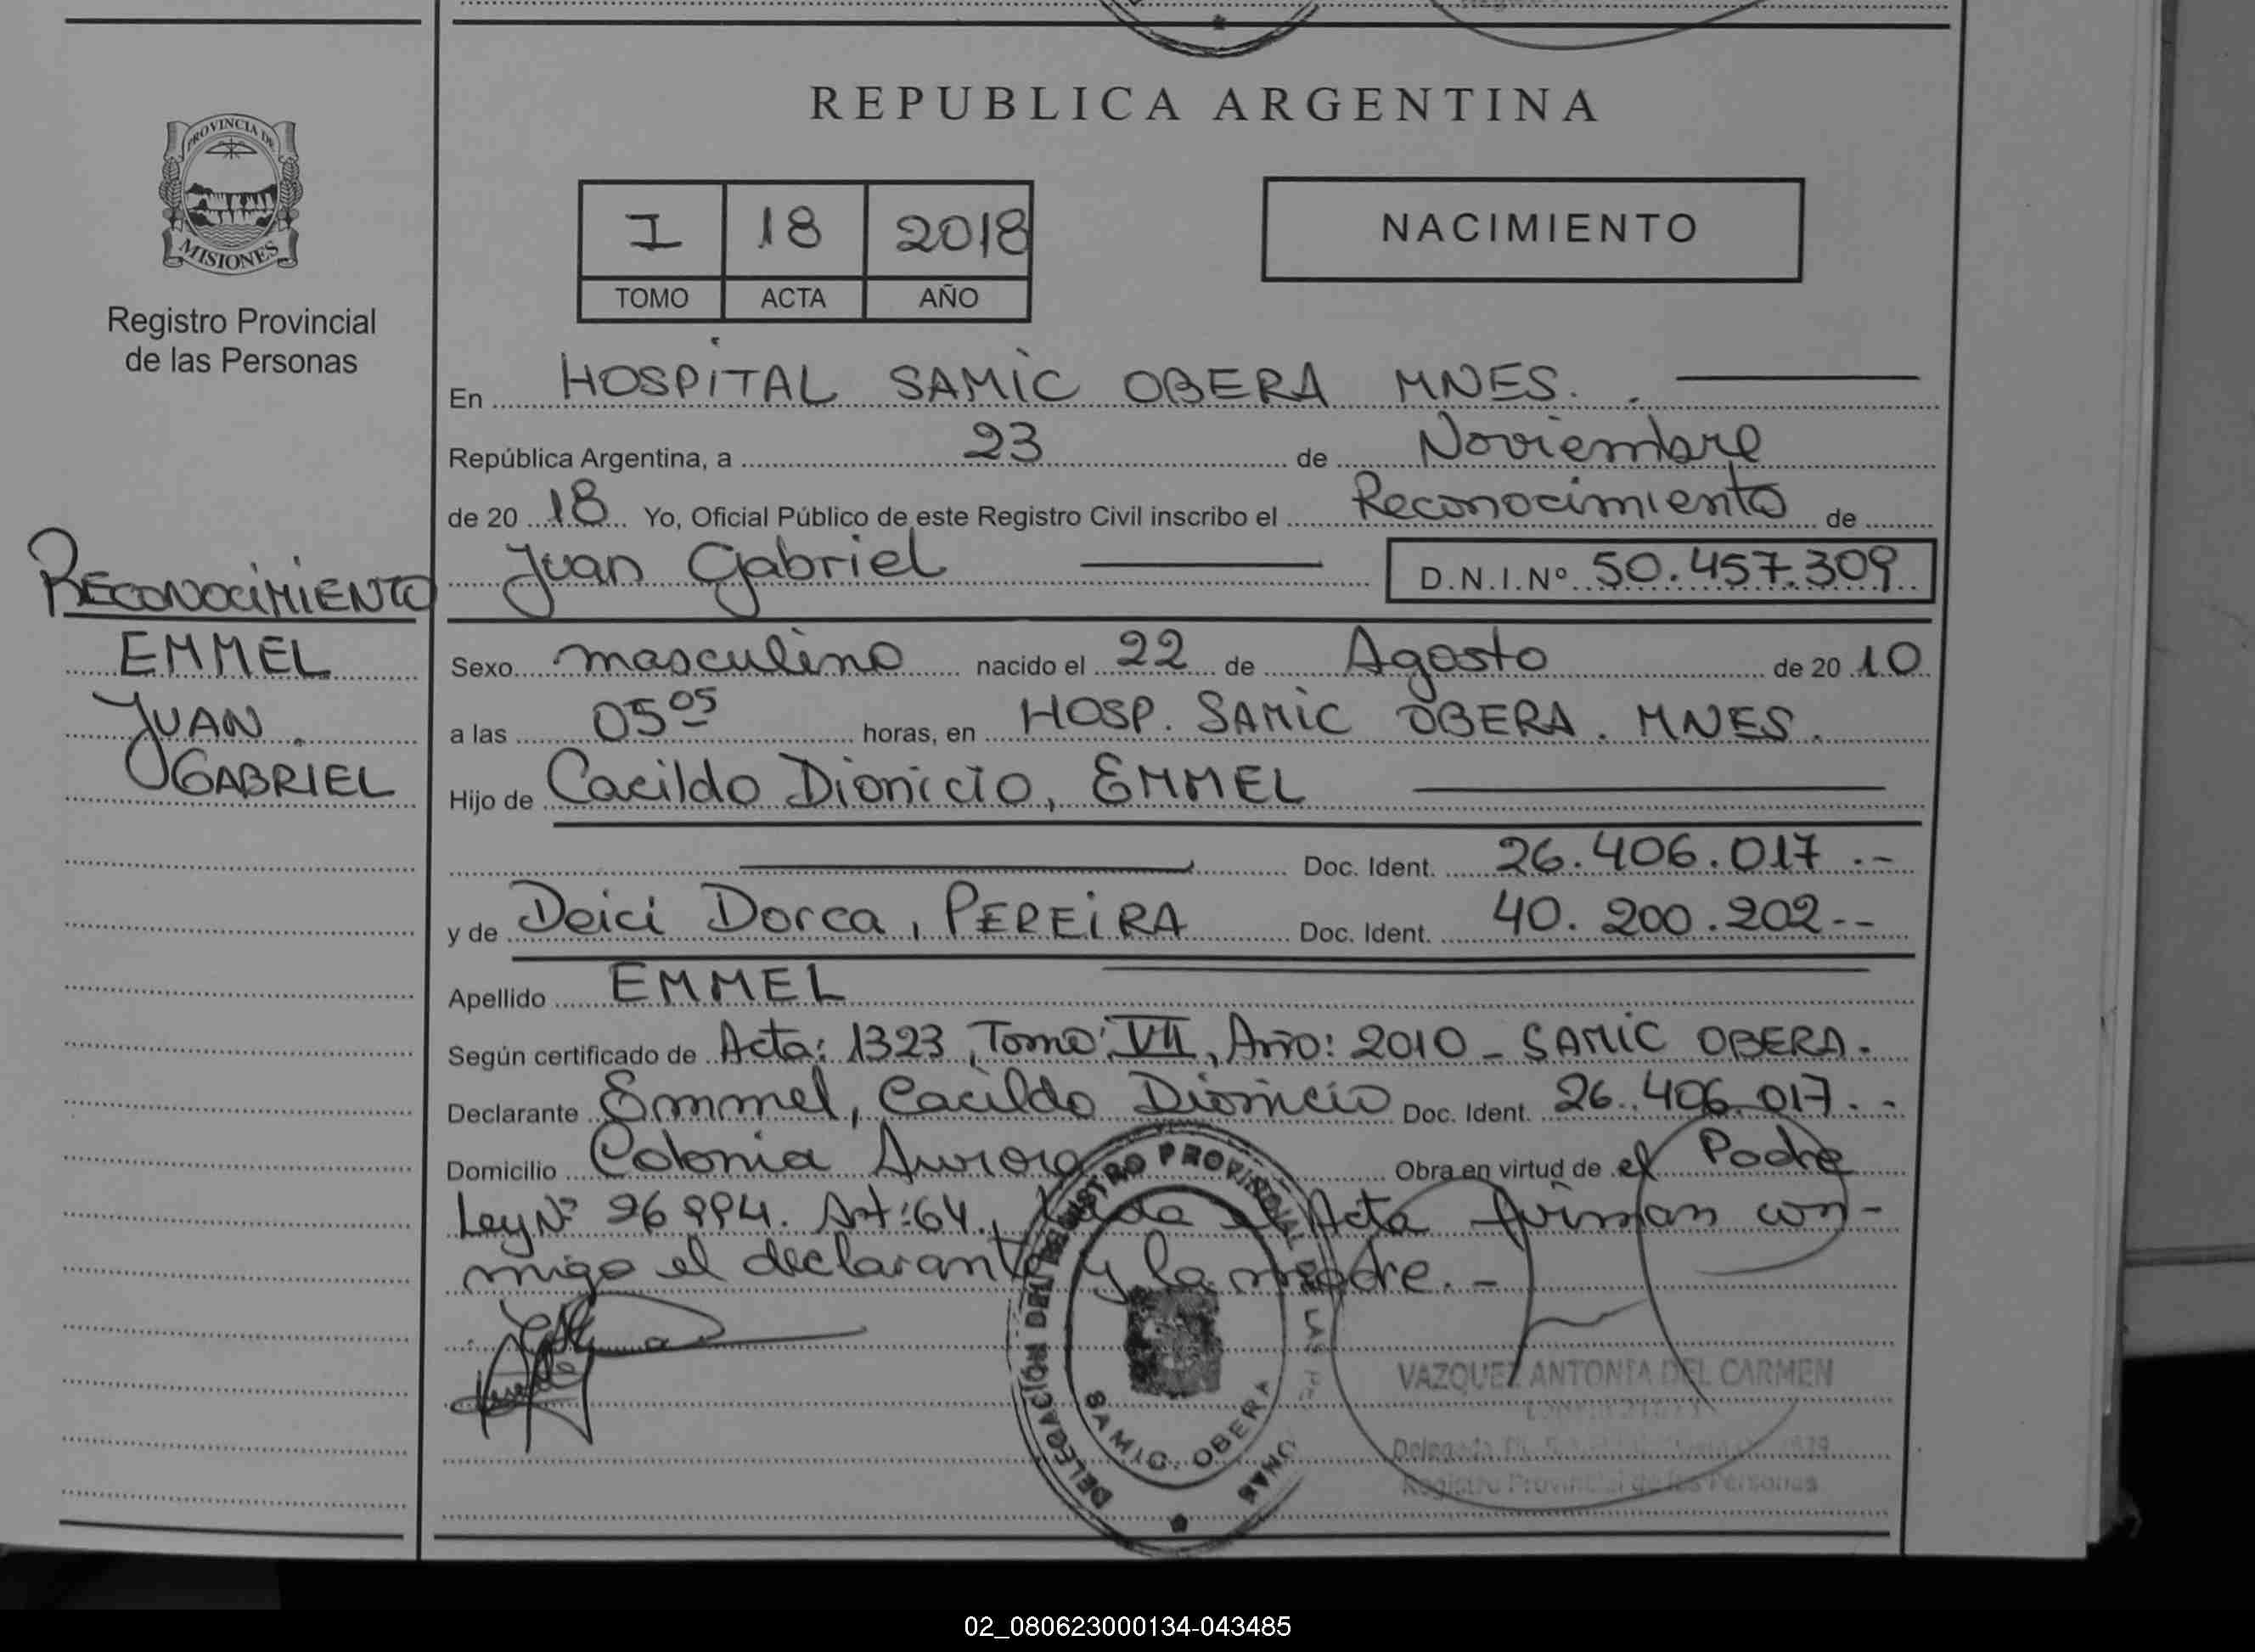 REPUBLICA ARGENTINA
PROVINCIA DE
MISIONES
Registro Provincial
de las Personas
I 18 2018
TOMO ACTA AÑO
NACIMIENTO
En HOSPITAL SAMIC OBERA MNES.
República Argentina, a 23 de Noviembre
de 20 18 Yo, Oficial Público de este Registro Civil inscribo el Reconocimiento de
Juan Gabriel D.N.I.Nº 50.457.309
RECONOCIMIENTO
EMMEL
JUAN
GABRIEL
Sexo masculino nacido el 22 de Agosto de 20 10
a las 05 05 horas, en HOSP. SAMIC OBERA. MNES.
Hijo de Cacildo Dionicio, EMMEL
Doc. Ident. 26.406.017.-
y de Deici Dorca, PEREIRA Doc. Ident. 40.200.202--
Apellido EMMEL
Según certificado de Acta: 1323, Tomo: VII, Año: 2010 - SAMIC OBERA.
Declarante Emmel, Cacildo Dionicio Doc. Ident. 26.406.017.-
Domicilio Colonia Aurora Obra en virtud de el Padre
Ley Nº 26994. Art: 64., el Acta firman con-
migo el declarante y la madre.-
DELEGACIÓN DEL REGISTRO PROVINCIAL DE LAS PERSONAS
SAMIC. OBERA
VAZQUEZ ANTONIA DEL CARMEN
Registro Provincial de las Personas
02_080623000134-043485